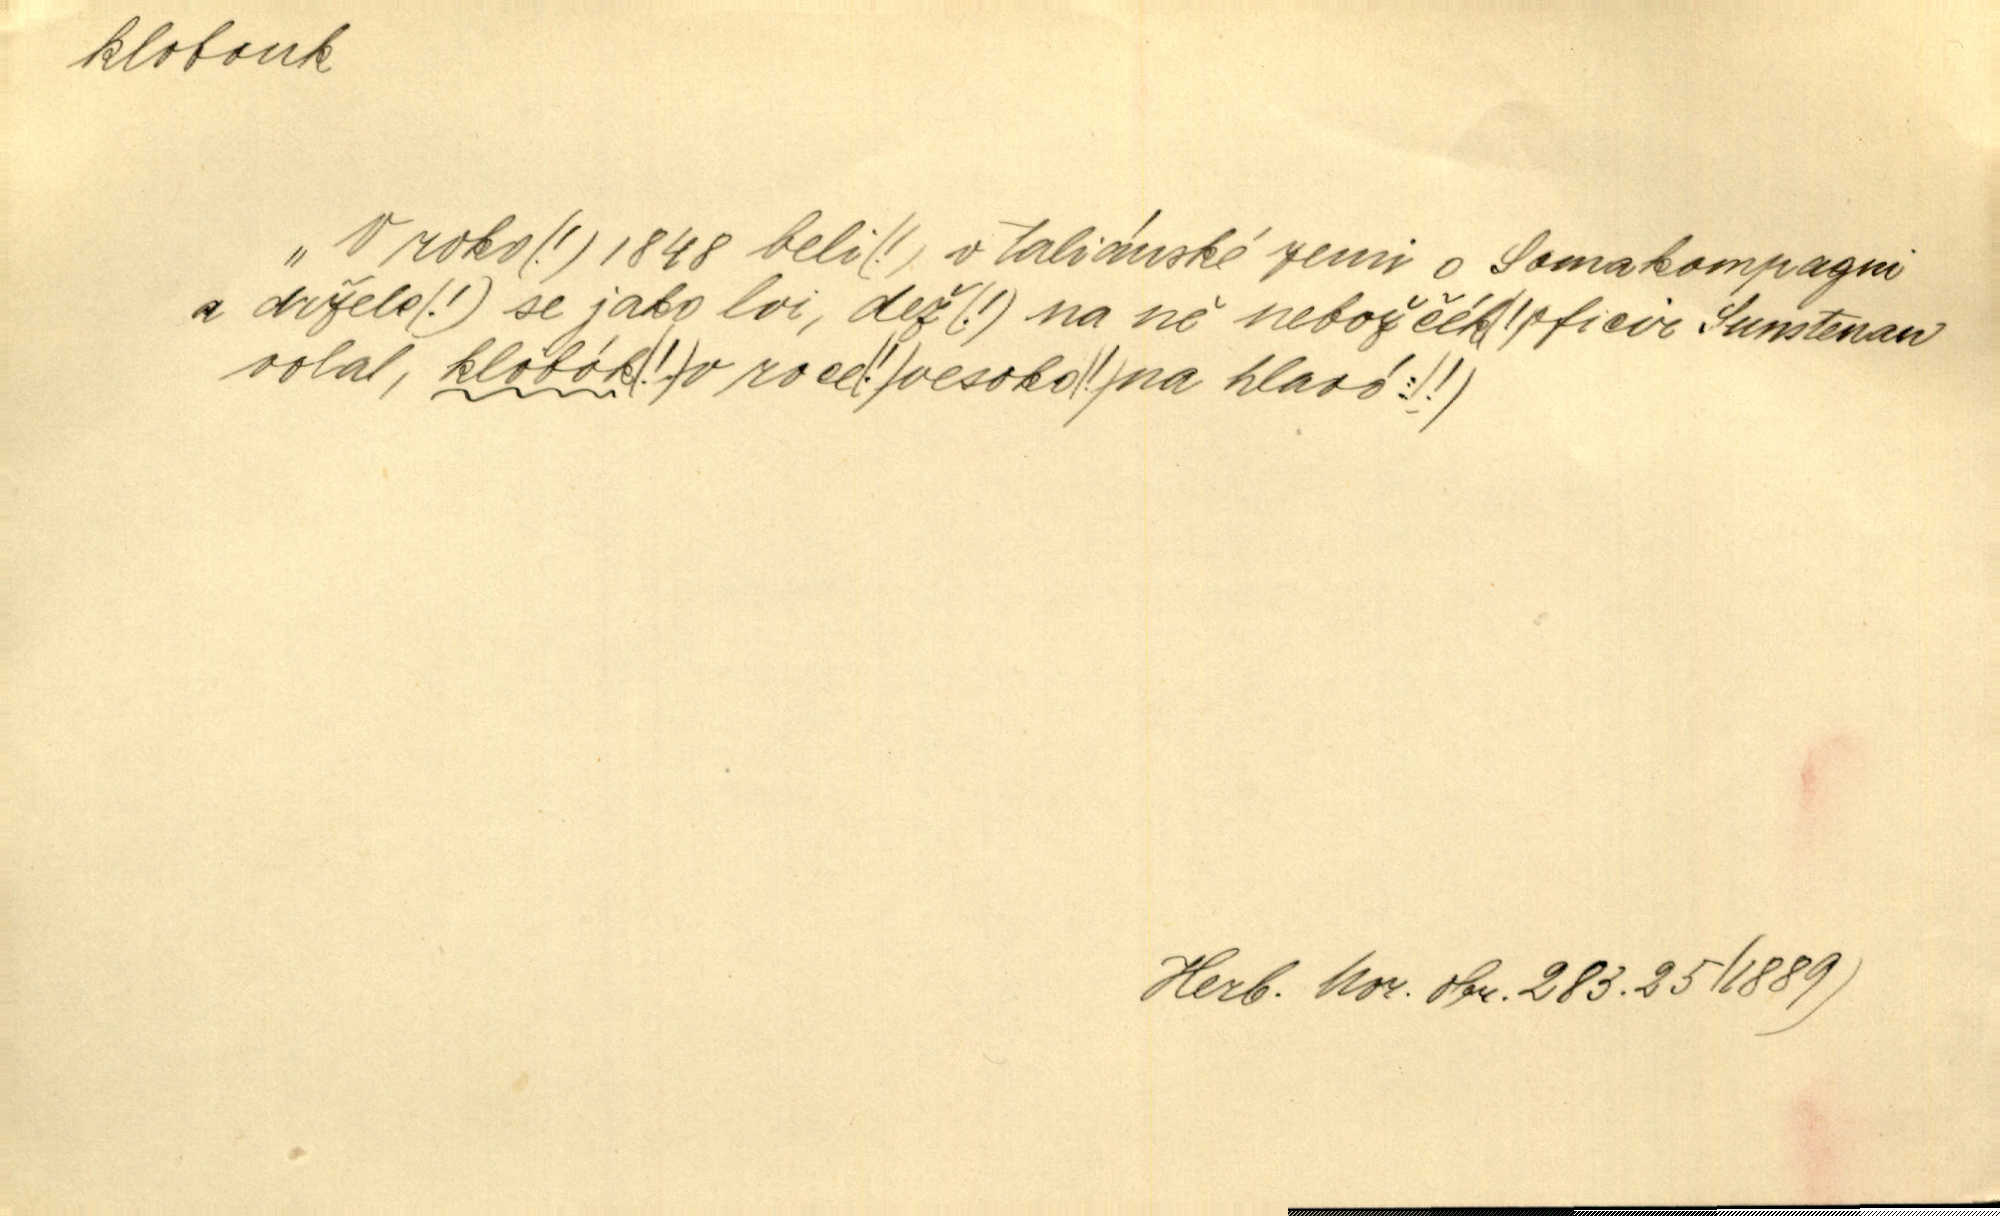 klobouk
„V roko(!) 1848 beli(!) v taliánské zemi o Somakompagni
a držele(!) se jako lvi, dež(!) na ně nebožčék(!) oficír Sunstenau
volal, klobók(!) v roce(!) vesoko(!) na hlavó:(!)
Herb. Mor. obr. 283.25(1889)